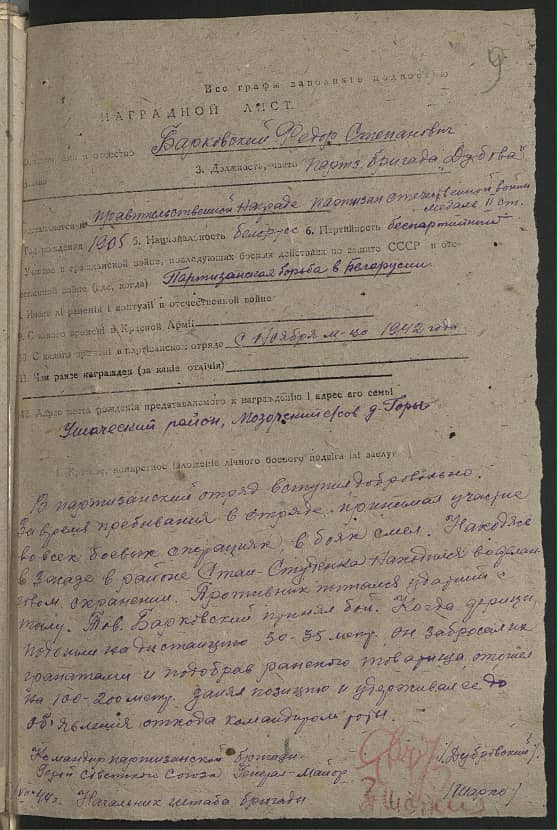 9
Все графы заполнять полностью
НАГРАДНОЙ ЛИСТ
Барковский Федор Степанович
3. Должность, часть партз. бригада "Дубова"
правительственной награде партизан отечественной войны
медаль II ст.
Год рождения 1905 5. Национальность белорус 6. Партийность беспартийный
Участие в гражданской войне, последующих боевых действиях по защите СССР и оте-
чественной войне (где, когда) Партизанская борьба в Беларусии
8. Имеет лі ранения і контузіі в отечественной войне
9. С какого времені в Красной Арміі
10. С какого времені в партізанском отряде с ноября м-ца 1942 года
11. Чем ранее награжден (за какіе отлічія)
12. Адрес места рожденія представляемого к награжденію і адрес его семьі
Ушачский район, Мозорский с/сов д. Горы
1. Краткое, конкретное ізложеніе лічного боевого подвіга ілі заслуг
В партизанский отряд вступил добровольно.
За время пребывания в отряде принимал участие
во всех боевых операциях, в боях смел. Находясь
в засаде в районе Стаи-Ступенка находился в флан-
говом охранении. Противник пытался зайти с
тылу. Тов. Барковский принял бой. Когда фрицы
подошли на дистанцию 30-35 метр. он забросал их
гранатами и подобрав раненого товарища отошел
на 100-200 метр. занял позицию и удерживал ее до
об'явления отхода командиром роты.
Командир партизанской бригады
Герой Советского Союза Генерал-Майор (Дубровский).
Начальник штаба бригады (Марко)